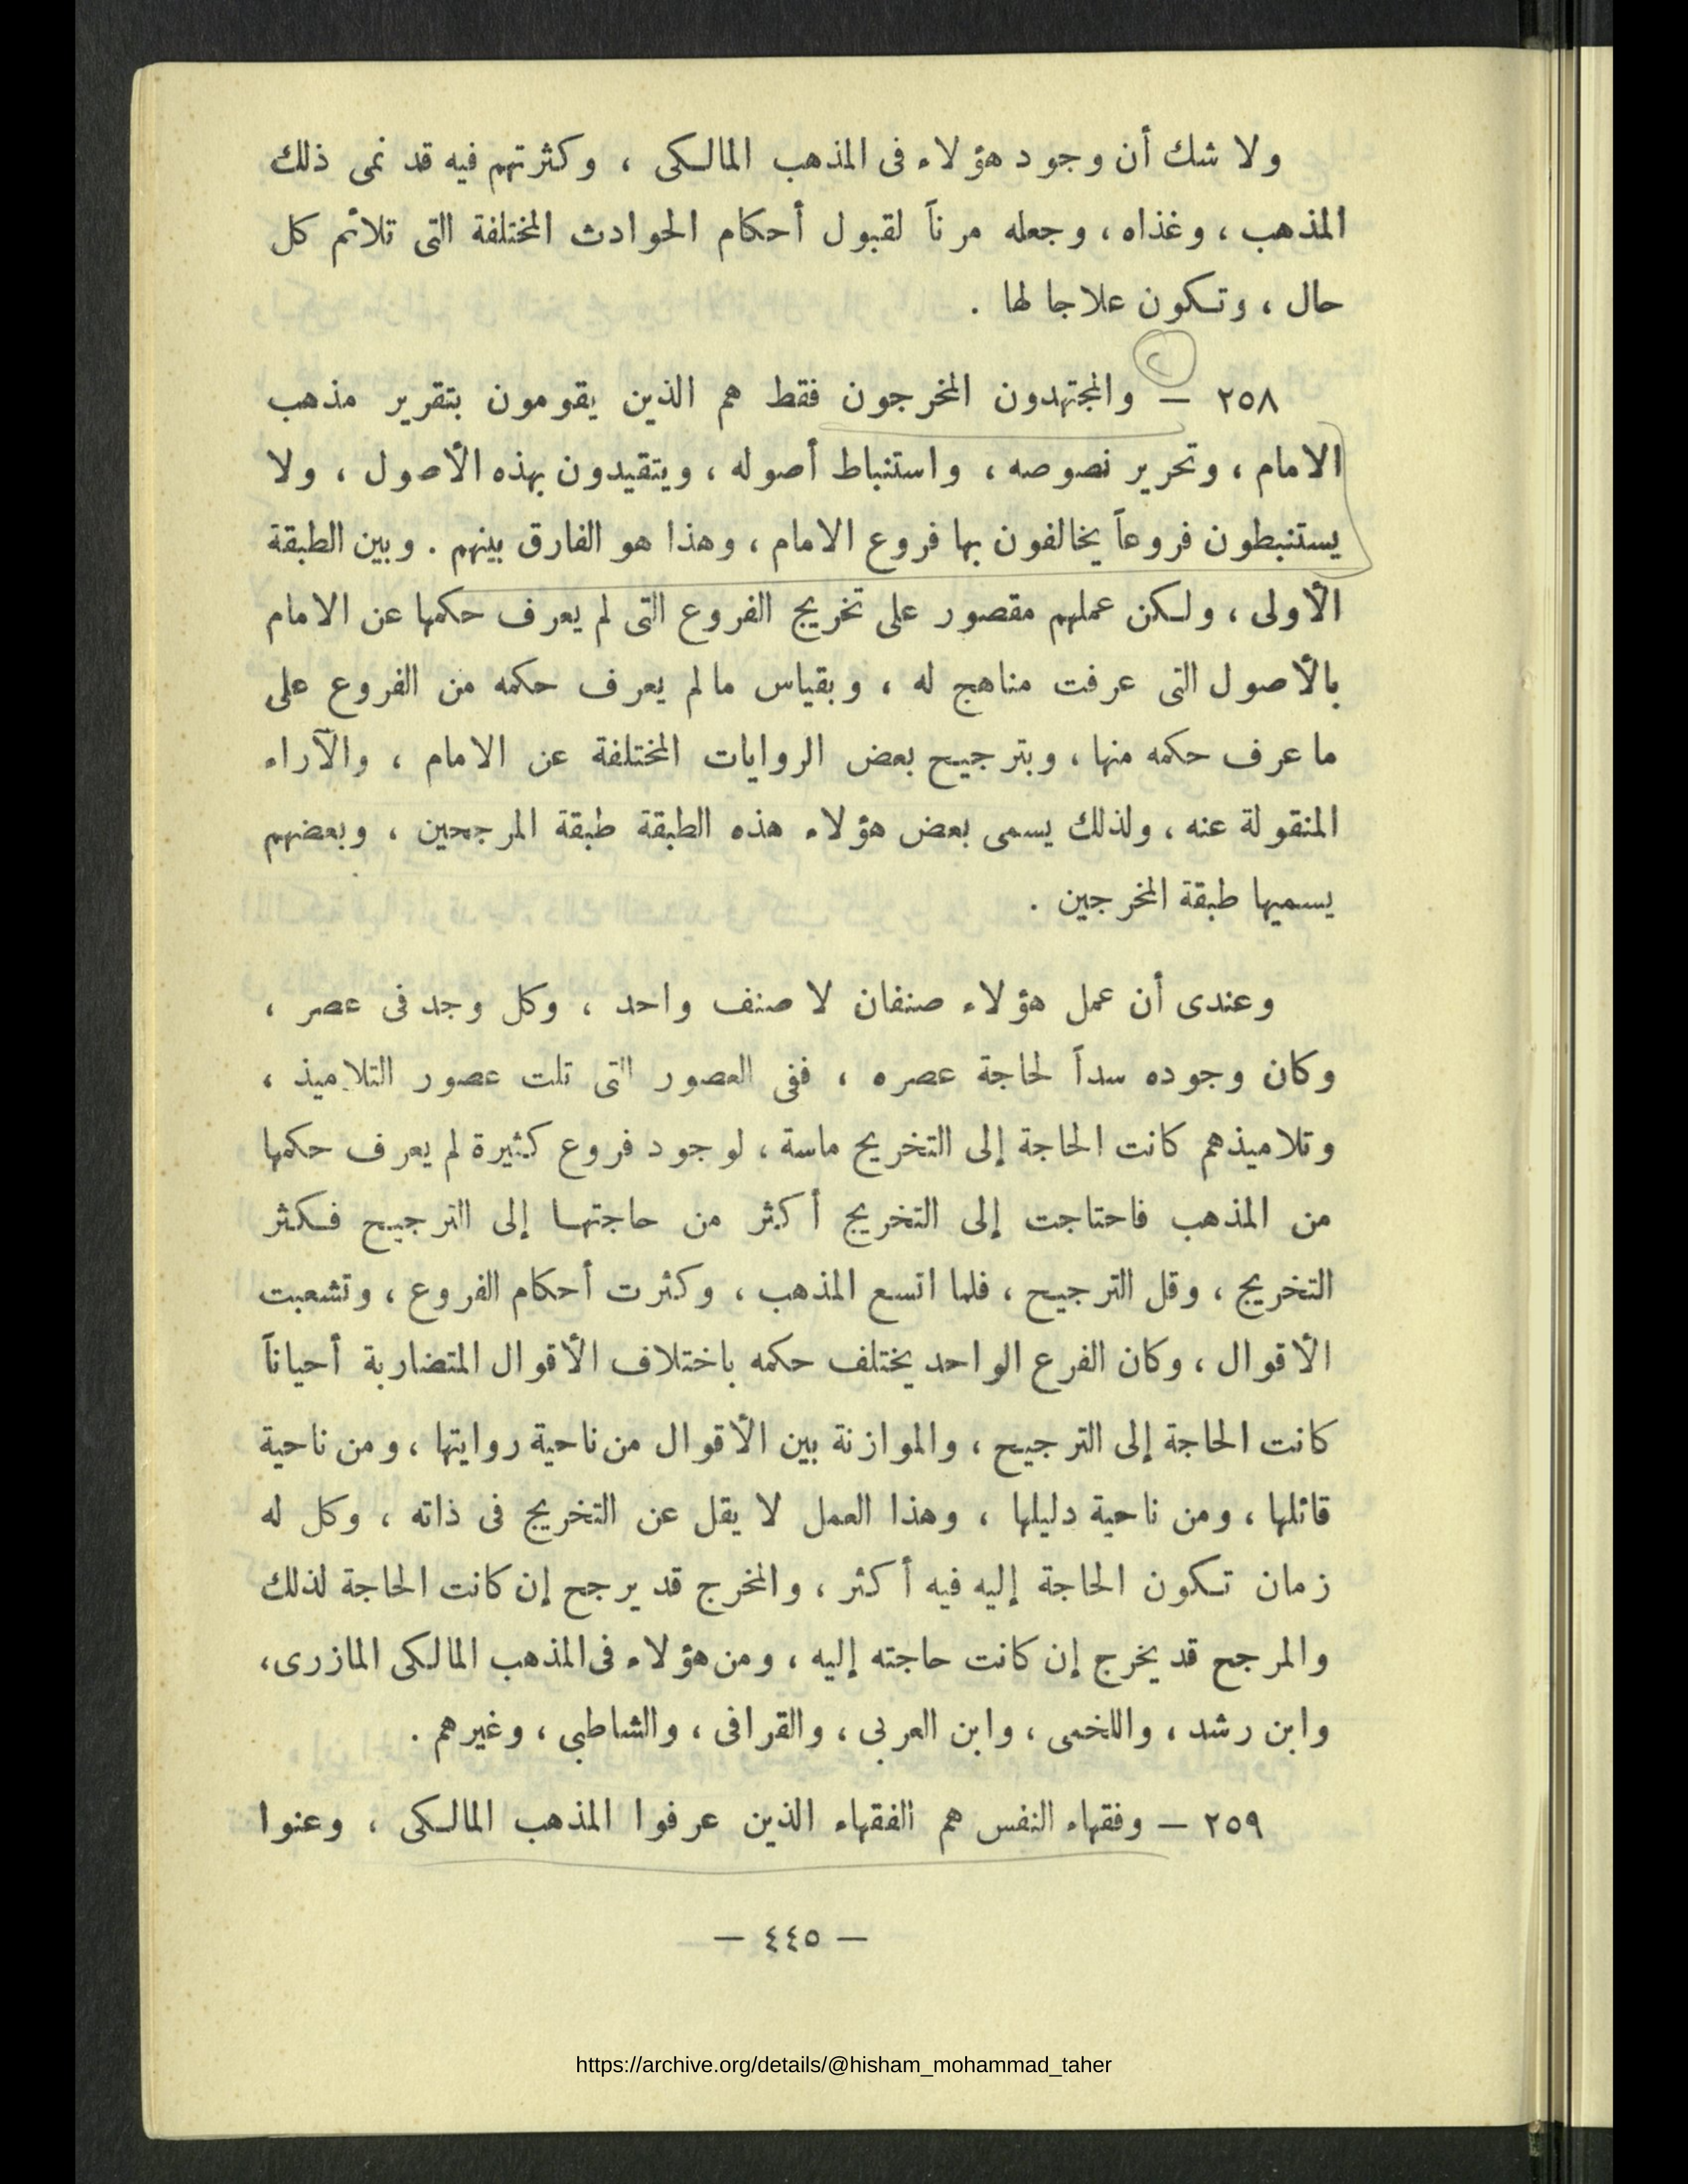 ولا شك أن وجود هؤلاء فى المذهب المالكى ، وكثرتهم فيه قد نمى ذلك
المذهب ، وغذاه ، وجعله مرناً لقبول أحكام الحوادث المختلفة التى تلائم كل
حال ، وتكون علاجا لها .
٢
٢٥٨ — والمجتهدون المخرجون فقط هم الذين يقومون بتقرير مذهب
الامام ، وتحرير نصوصه ، واستنباط أصوله ، ويتقيدون بهذه الأصول ، ولا
يستنبطون فروعاً يخالفون بها فروع الامام ، وهذا هو الفارق بينهم . وبين الطبقة
الأولى ، ولكن عملهم مقصور على تخريج الفروع التى لم يعرف حكمها عن الامام
بالأصول التى عرفت مناهج له ، وبقياس مالم يعرف حكمه من الفروع على
ما عرف حكمه منها ، وبترجيح بعض الروايات المختلفة عن الامام ، والآراء
المنقولة عنه ، ولذلك يسمى بعض هؤلاء هذه الطبقة طبقة المرجحين ، وبعضهم
يسميها طبقة المخرجين .
وعندى أن عمل هؤلاء صنفان لا صنف واحد ، وكل وجد فى عصر ،
وكان وجوده سداً لحاجة عصره ، ففى العصور التى تلت عصور التلاميذ ،
وتلاميذهم كانت الحاجة إلى التخريج ماسة ، لوجود فروع كثيرة لم يعرف حكمها
من المذهب فاحتاجت إلى التخريج أكثر من حاجتها إلى الترجيح فكثر
التخريج ، وقل الترجيح ، فلما اتسع المذهب ، وكثرت أحكام الفروع ، وتشعبت
الأقوال ، وكان الفرع الواحد يختلف حكمه باختلاف الأقوال المتضاربة أحياناً
كانت الحاجة إلى الترجيح ، والموازنة بين الأقوال من ناحية روايتها ، ومن ناحية
قائلها ، ومن ناحية دليلها ، وهذا العمل لا يقل عن التخريج فى ذاته ، وكل له
زمان تكون الحاجة إليه فيه أكثر ، والمخرج قد يرجح إن كانت الحاجة لذلك
والمرجح قد يخرج إن كانت حاجته إليه ، ومن هؤلاء فى المذهب المالكى المازرى،
وابن رشد ، واللخمى ، وابن العربى ، والقرافى ، والشاطبى ، وغيرهم .
٢٥٩ — وفقهاء النفس هم الفقهاء الذين عرفوا المذهب المالكى ، وعنوا
— ٤٤٥ —
https://archive.org/details/@hisham_mohammad_taher